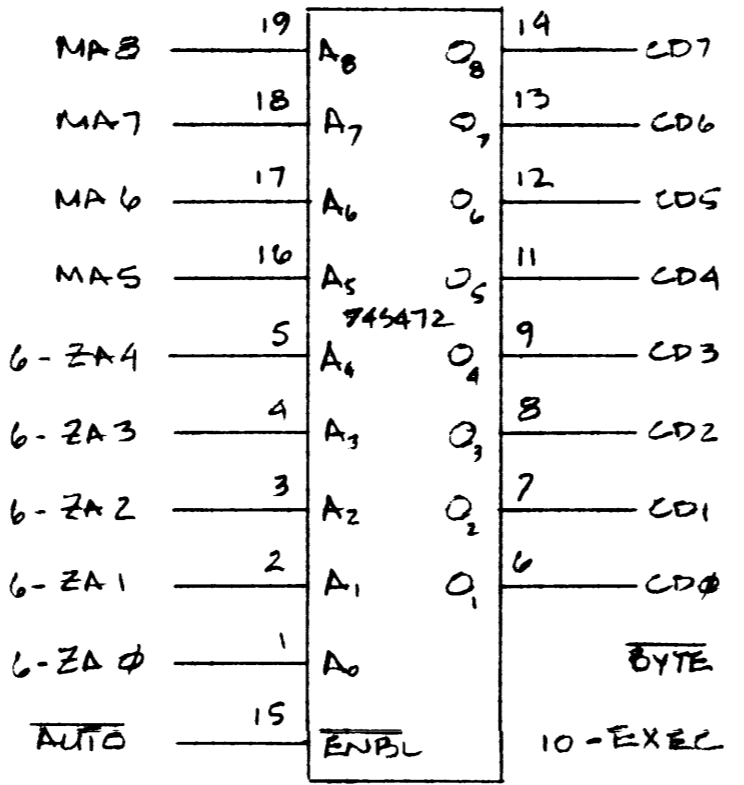 MA8 19 A8 O8 14 CD7
MA7 18 A7 O7 13 CD6
MA6 17 A6 O6 12 CD5
MA5 16 A5 O5 11 CD4
74S472
6-ZA4 5 A4 O4 9 CD3
6-ZA3 4 A3 O3 8 CD2
6-ZA2 3 A2 O2 7 CD1
6-ZA1 2 A1 O1 6 CDØ
6-ZAØ 1 A0 BYTE
AUTO 15 ENBL 10-EXEC